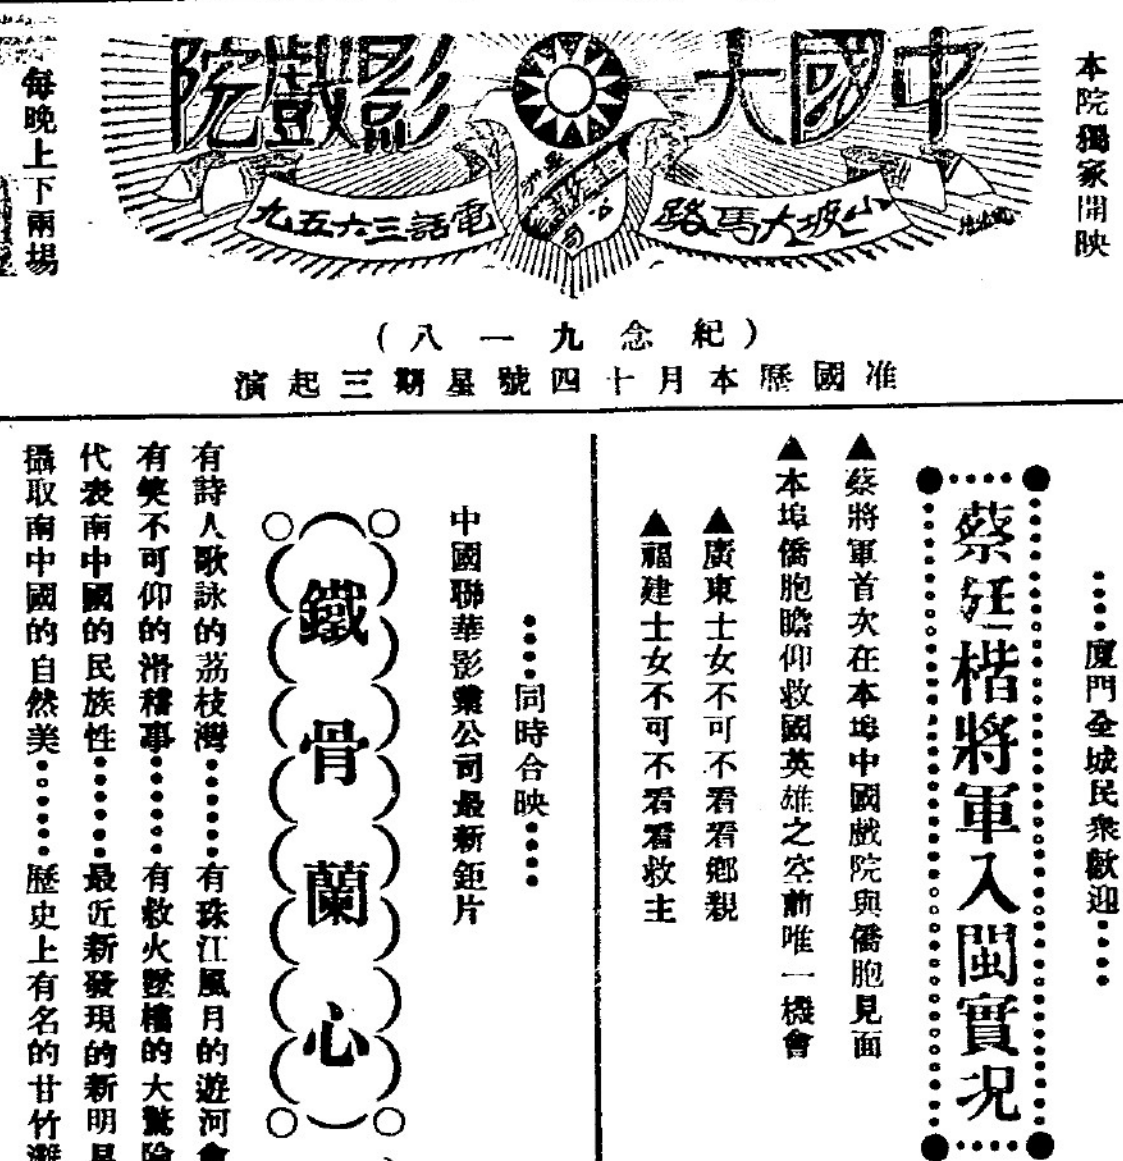 中國大影戲院
本院獨家開映
每晚上下兩場
小坡大馬路
電話三六五九
(紀念九一八)
准國曆本月十四號星期三起演
●●●●廈門全城民衆歡迎●●●●
蔡廷楷將軍入閩實况
▲蔡將軍首次在本埠中國戲院與僑胞見面
▲本埠僑胞瞻仰救國英雄之空前唯一機會
▲廣東士女不可不看看鄉親
▲福建士女不可不看看救主
●●●●同時合映●●●●
中國聯華影業公司最新鉅片
鐵骨蘭心
有詩人歌詠的荔枝灣●●●●●●有珠江風月的遊河會
有笑不可仰的滑稽事●●●●●●有救火墜樓的大驚險
代表南中國的民族性●●●●●●最近新發現的新明星
攝取南中國的自然美●●●●●●歷史上有名的甘竹灘